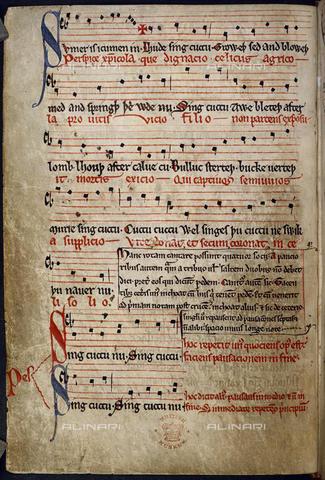 Sumer is icumen in. Lhude sing cuccu. Groweþ sed and bloweþ
Perspice xpicola que dignacio celicus agrico
med and springþ þe wde nu. Sing cuccu Awe bleteþ after
la pro uitis vicio filio non parcens exposu
lomb lhouþ after calue cu. Bulluc sterteþ. bucke uerteþ
it mortis exicio Qui captiuos semiuiuos
murie sing cuccu. Cuccu cuccu Wel singes þu cuccu ne swik
a supplicio Vite donat et secum coronat in ce
þu nauer nu.
li solio.
Hanc rotam cantare possunt quatuor socii. A paucio
ribus autem quam a tribus uel saltem duobus non debet
dici
Sing cuccu nu. Sing cuccu.
hoc repetit unus quociens opus est.
faciens pausacionem in fine.
Pes
Sing cuccu. Sing cuccu nu
hoc dicit alius. pausans in medio et non in
fine. Set immediate repetens principium
ALINARI
ALINARI